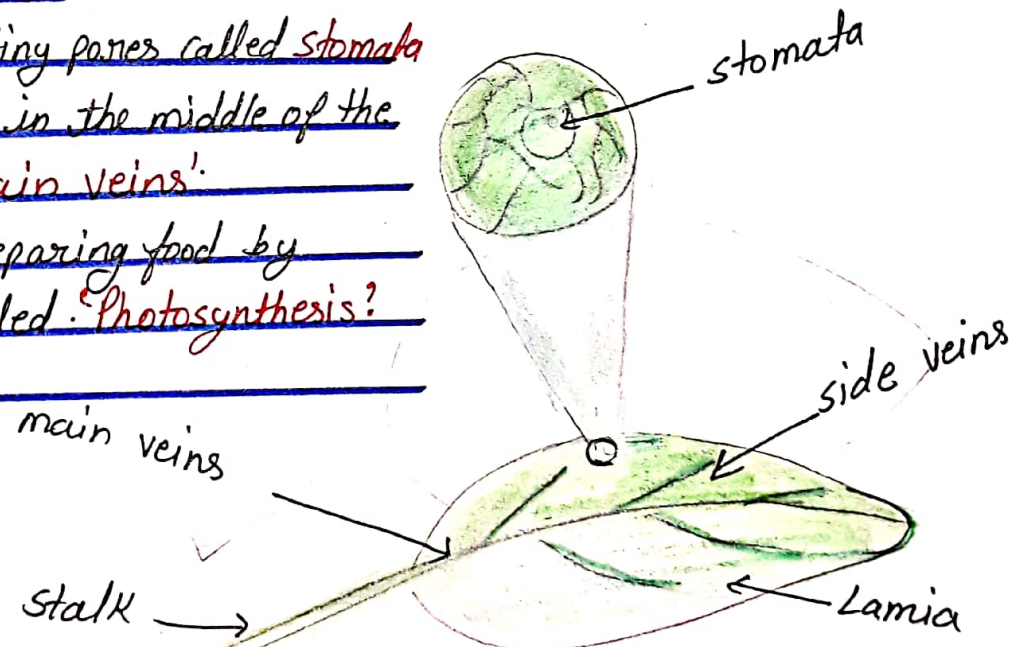 iny pores called stomata
in the middle of the
ain veins'.
eparing food by
led 'Photosynthesis'
stomata
side veins
main veins
Stalk
Lamia